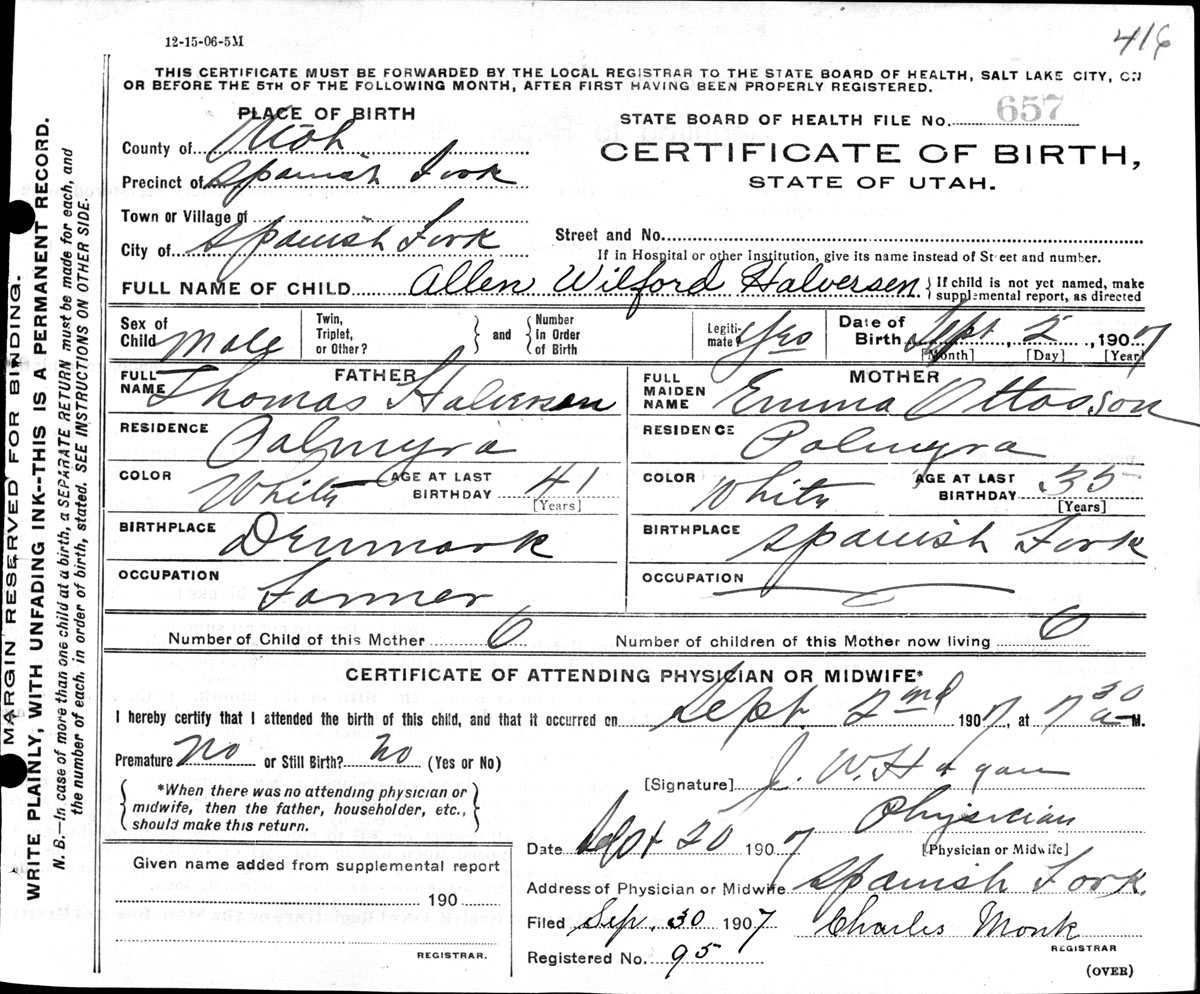 12-15-06-5M
416
THIS CERTIFICATE MUST BE FORWARDED BY THE LOCAL REGISTRAR TO THE STATE BOARD OF HEALTH, SALT LAKE CITY, ON
OR BEFORE THE 5TH OF THE FOLLOWING MONTH, AFTER FIRST HAVING BEEN PROPERLY REGISTERED.
PLACE OF BIRTH
STATE BOARD OF HEALTH FILE No. 657
County of Utah
CERTIFICATE OF BIRTH,
STATE OF UTAH.
Precinct of Spanish Fork
Town or Village of
City of Spanish Fork
Street and No.
If in Hospital or other Institution, give its name instead of Street and number.
FULL NAME OF CHILD Allen Wilford Halversen { If child is not yet named, make
supplemental report, as directed
Sex of Child Male
Twin, Triplet, or Other? } and { Number In Order of Birth
Legitimate Yes
Date of Birth Sept. 2, 1907
[Month] [Day] [Year]
FATHER
FULL NAME Thomas Halversen
RESIDENCE Palmyra
COLOR White AGE AT LAST BIRTHDAY 41
[Years]
BIRTHPLACE Denmark
OCCUPATION Farmer
MOTHER
FULL MAIDEN NAME Emma Ottosson
RESIDENCE Palmyra
COLOR White AGE AT LAST BIRTHDAY 35
[Years]
BIRTHPLACE Spanish Fork
OCCUPATION
Number of Child of this Mother 6 Number of children of this Mother now living 6
CERTIFICATE OF ATTENDING PHYSICIAN OR MIDWIFE*
I hereby certify that I attended the birth of this child, and that it occurred on Sept. 2nd 1907, at 7 30 a M.
Premature No or Still Birth? No (Yes or No)
{ *When there was no attending physician or
midwife, then the father, householder, etc.,
should make this return. }
[Signature] J. W. Hagan
Physician
[Physician or Midwife]
Date Sept 20 1907
Address of Physician or Midwife Spanish Fork.
Filed Sep. 30 1907 Charles Monk
REGISTRAR
Registered No. 95
(OVER)
Given name added from supplemental report
190
REGISTRAR.
MARGIN RESERVED FOR BINDING.
WRITE PLAINLY, WITH UNFADING INK--THIS IS A PERMANENT RECORD.
N. B.—In case of more than one child at a birth, a SEPARATE RETURN must be made for each, and
the number of each, in order of birth, stated. SEE INSTRUCTIONS ON OTHER SIDE.